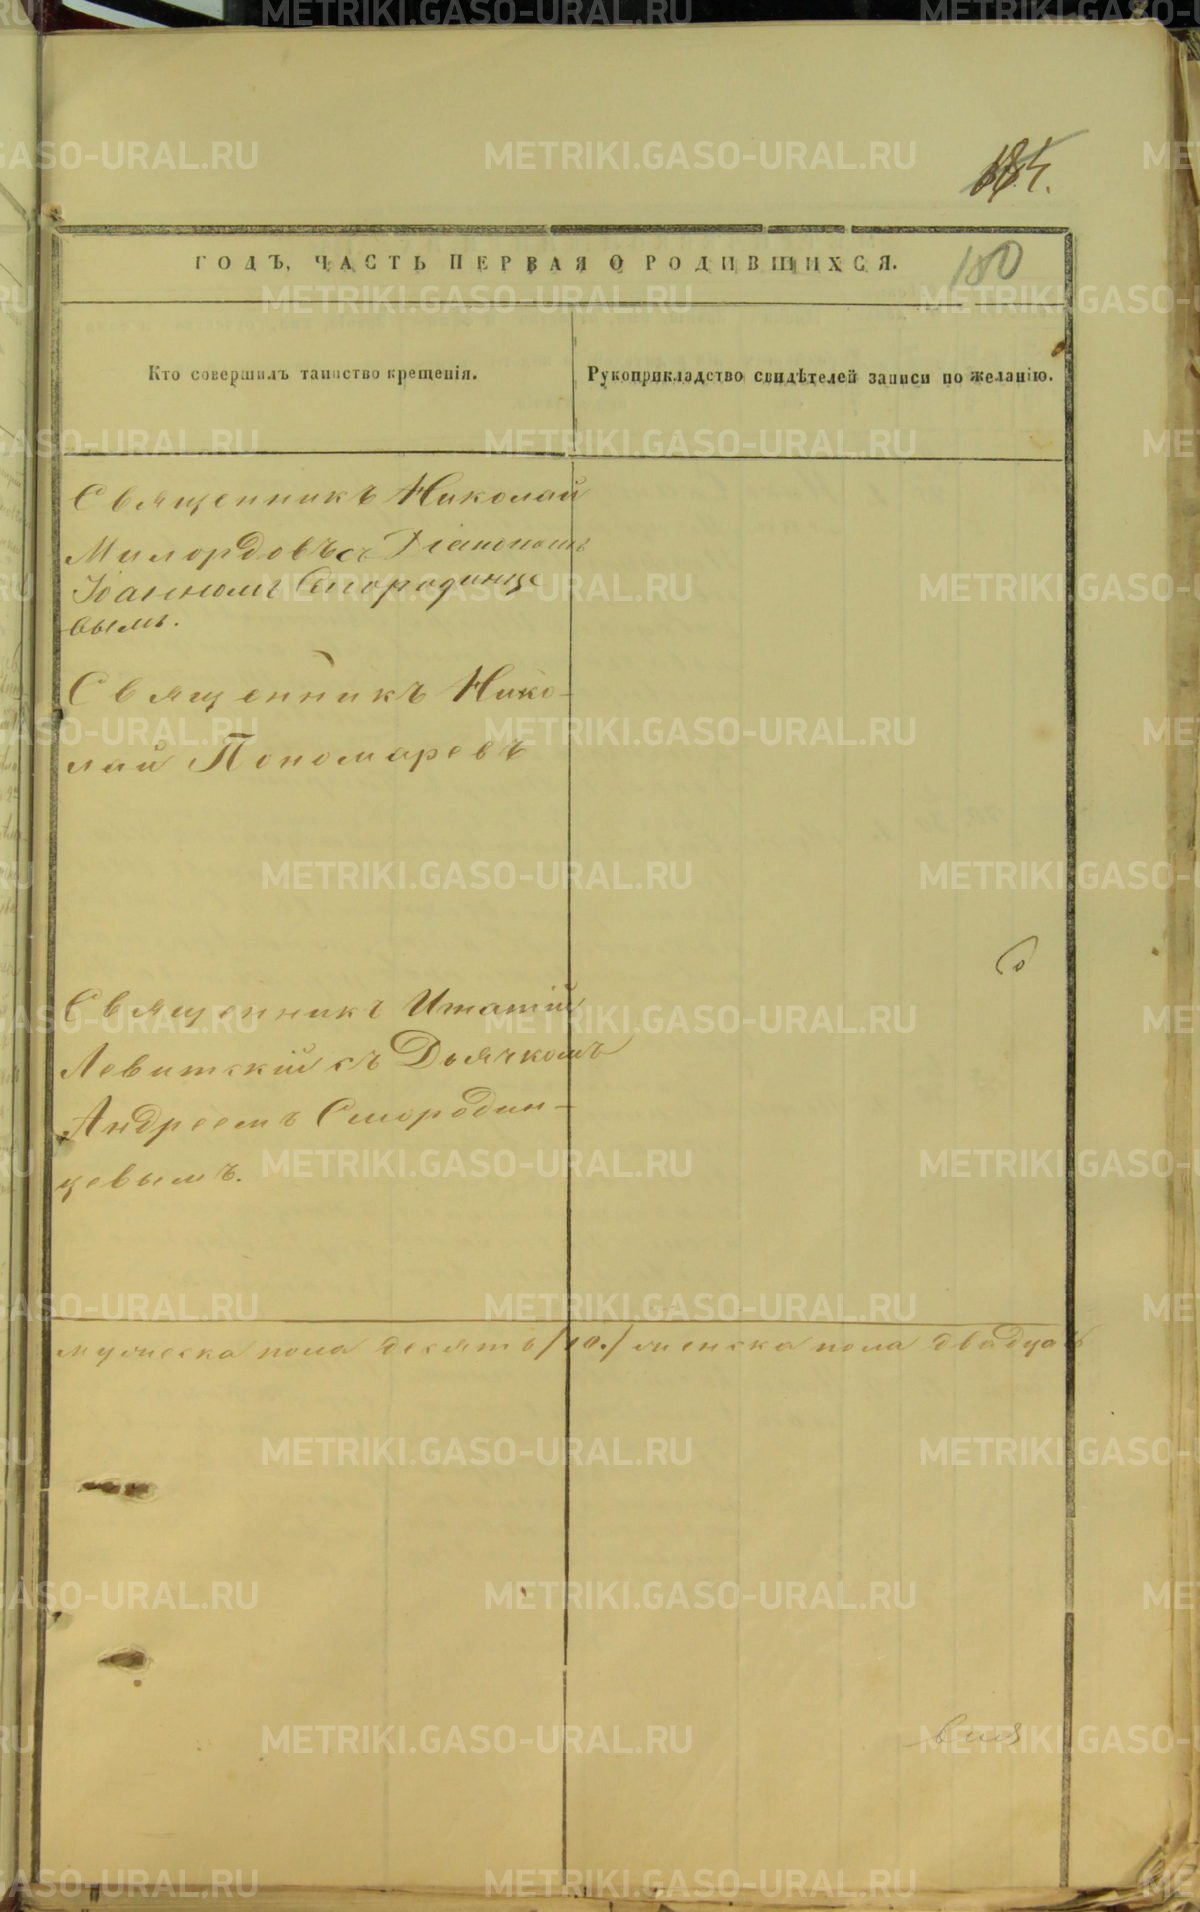 METRIKI.GASO-URAL.RU
184.
ГОДЪ, ЧАСТЬ ПЕРВАЯ О РОДИВШИХСЯ.
180
Кто совершилъ таинство крещенія.
Рукоприкладство свидѣтелей записи по желанію.
Священникъ Николай
Милордовъ съ Діакономъ
Іоанномъ Смородинце
вымъ.
Священникъ Нико-
лай Пономаревъ
Священникъ Игнатій
Левитскій съ Дьячкомъ
Андреемъ Смородин-
цевымъ.
мужеска пола десять /10./ женска пола двадцать